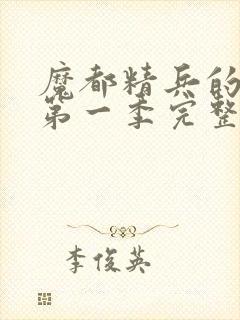 魔都精兵的
第一季完整
李俊英